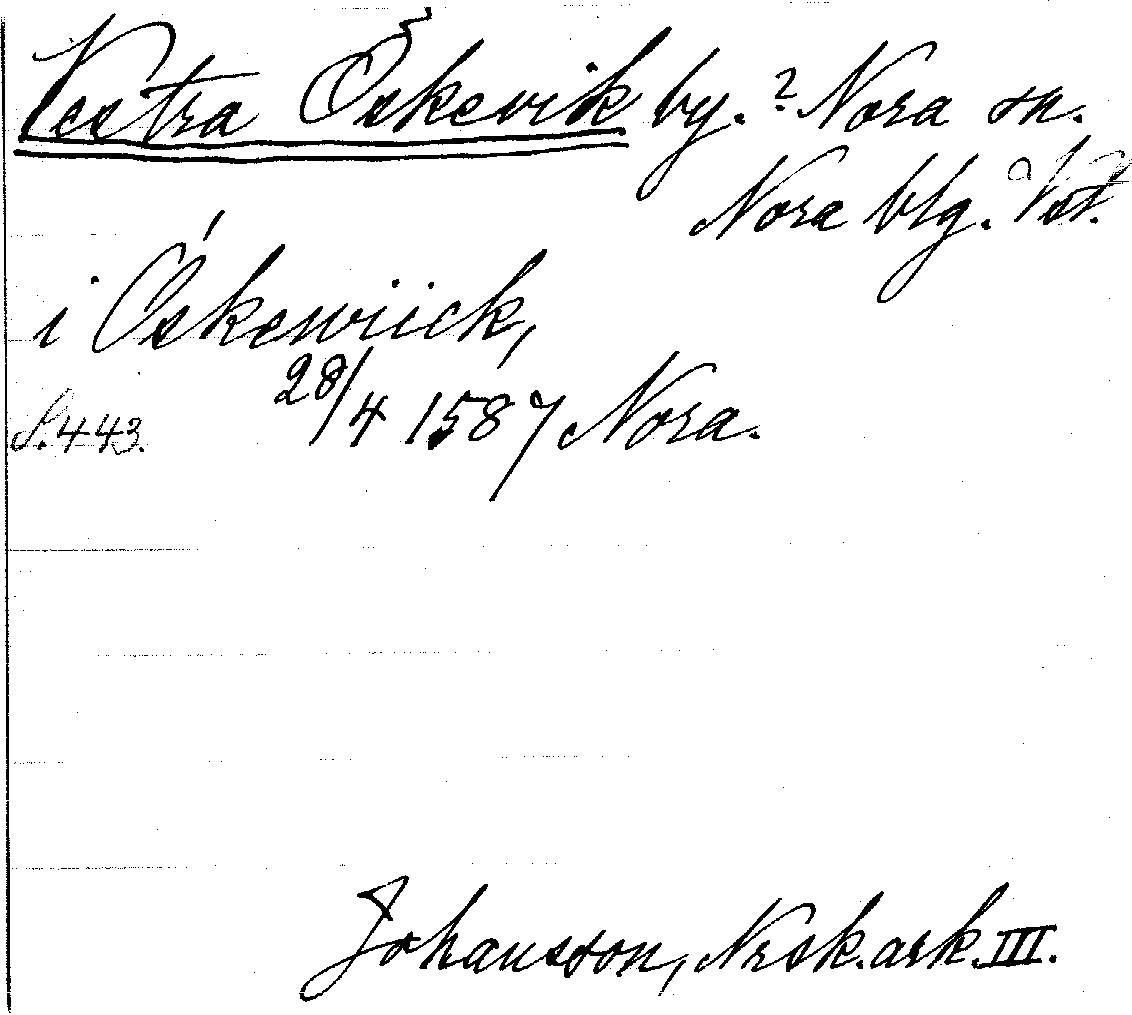 Vestra Öskevik by. ? Nora sn.
Nora blg. Vst.
i Öskewiick,
S. 443. 28/4 1587 Nora.
Johansson, Nrsk. ark. III.